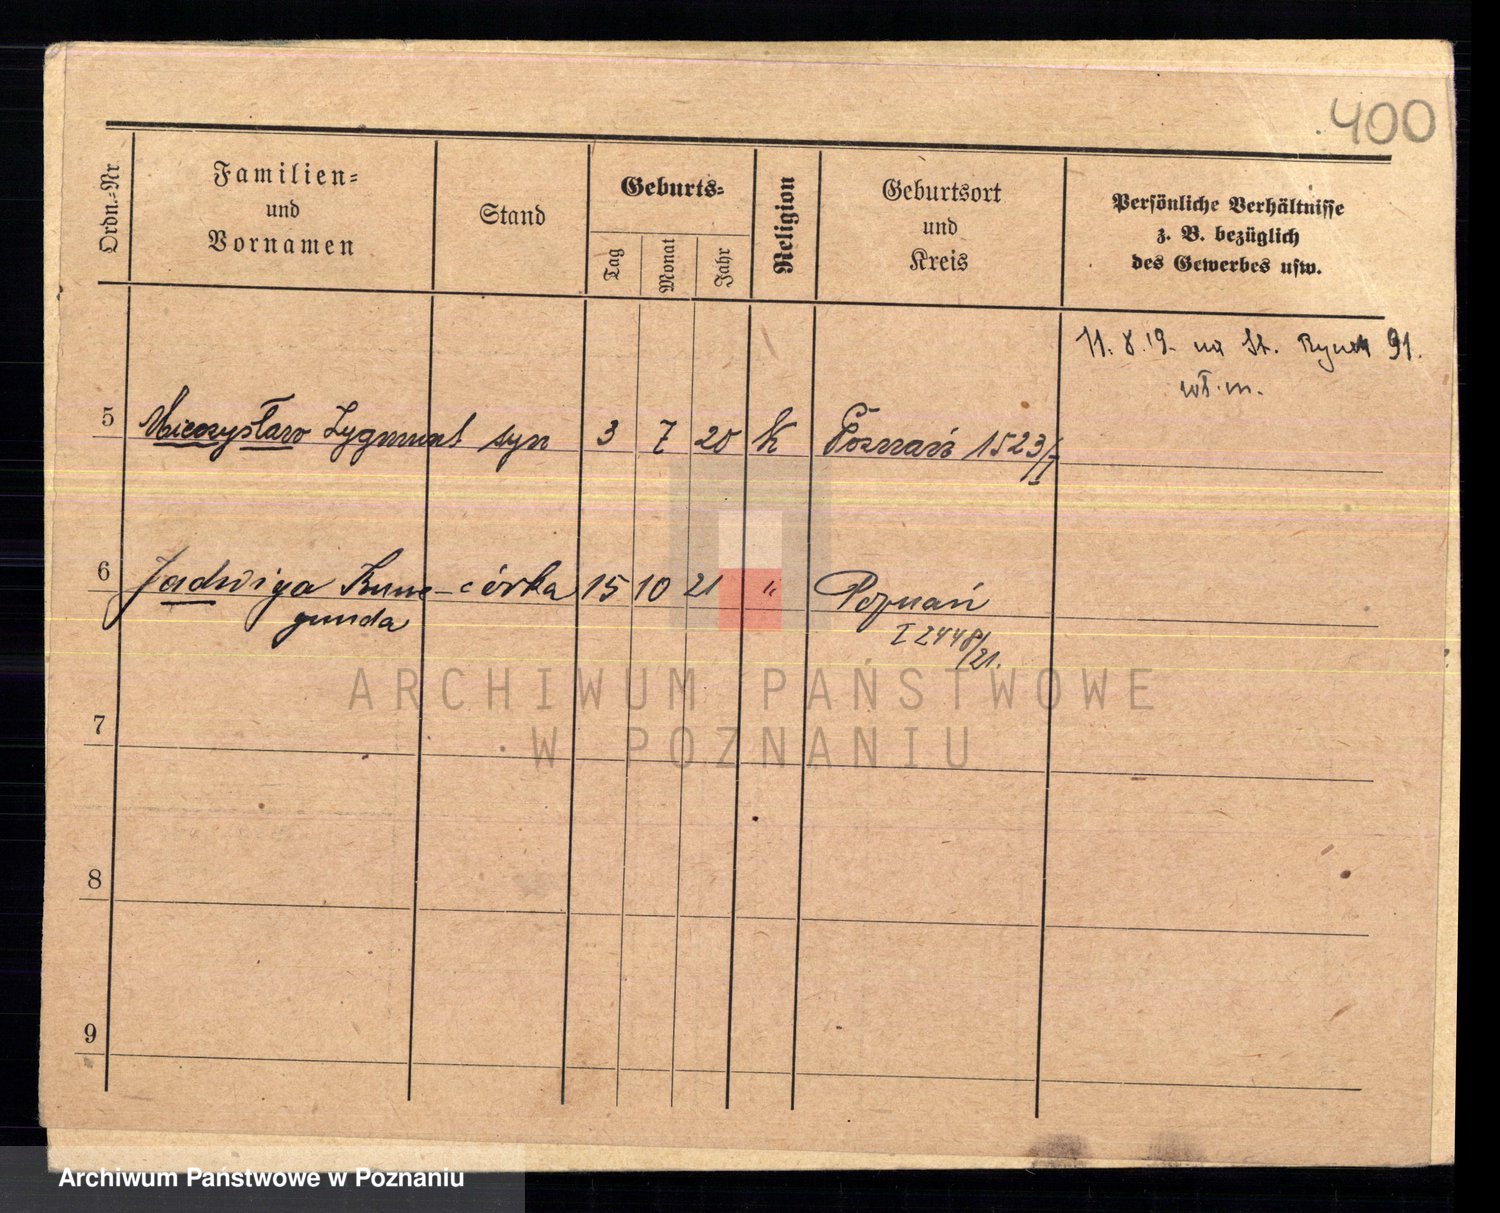 400
Ordn.-Nr
Familien-
und
Vornamen
Stand
Geburts-
Tag
Monat
Jahr
Religion
Geburtsort
und
Kreis
Persönliche Verhältnisse
z. B. bezüglich
des Gewerbes usw.
11. 8. 19. na St. Rynek 91.
wł. m.
5 Mieczysław Zygmunt syn 3 7 20 K Poznań 1523/I
6 Jadwiga Kune- córka 15 10 21 " Poznań
gunda
I 2448/21.
7
8
9
ARCHIWUM PAŃSTWOWE
W POZNANIU
Archiwum Państwowe w Poznaniu